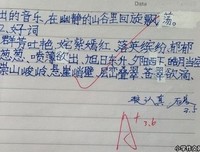 Date
出的音乐，在幽静的山谷里回旋飘荡。
2、好词
群芳吐艳、姹紫嫣红、落英缤纷、郁郁
葱葱、喷薄欲出、旭日东升、夕阳西下、皓月当空
崇山峻岭、悬崖峭壁、层峦叠翠、苍翠欲滴、
很认真，
A+
5.6
小学作文